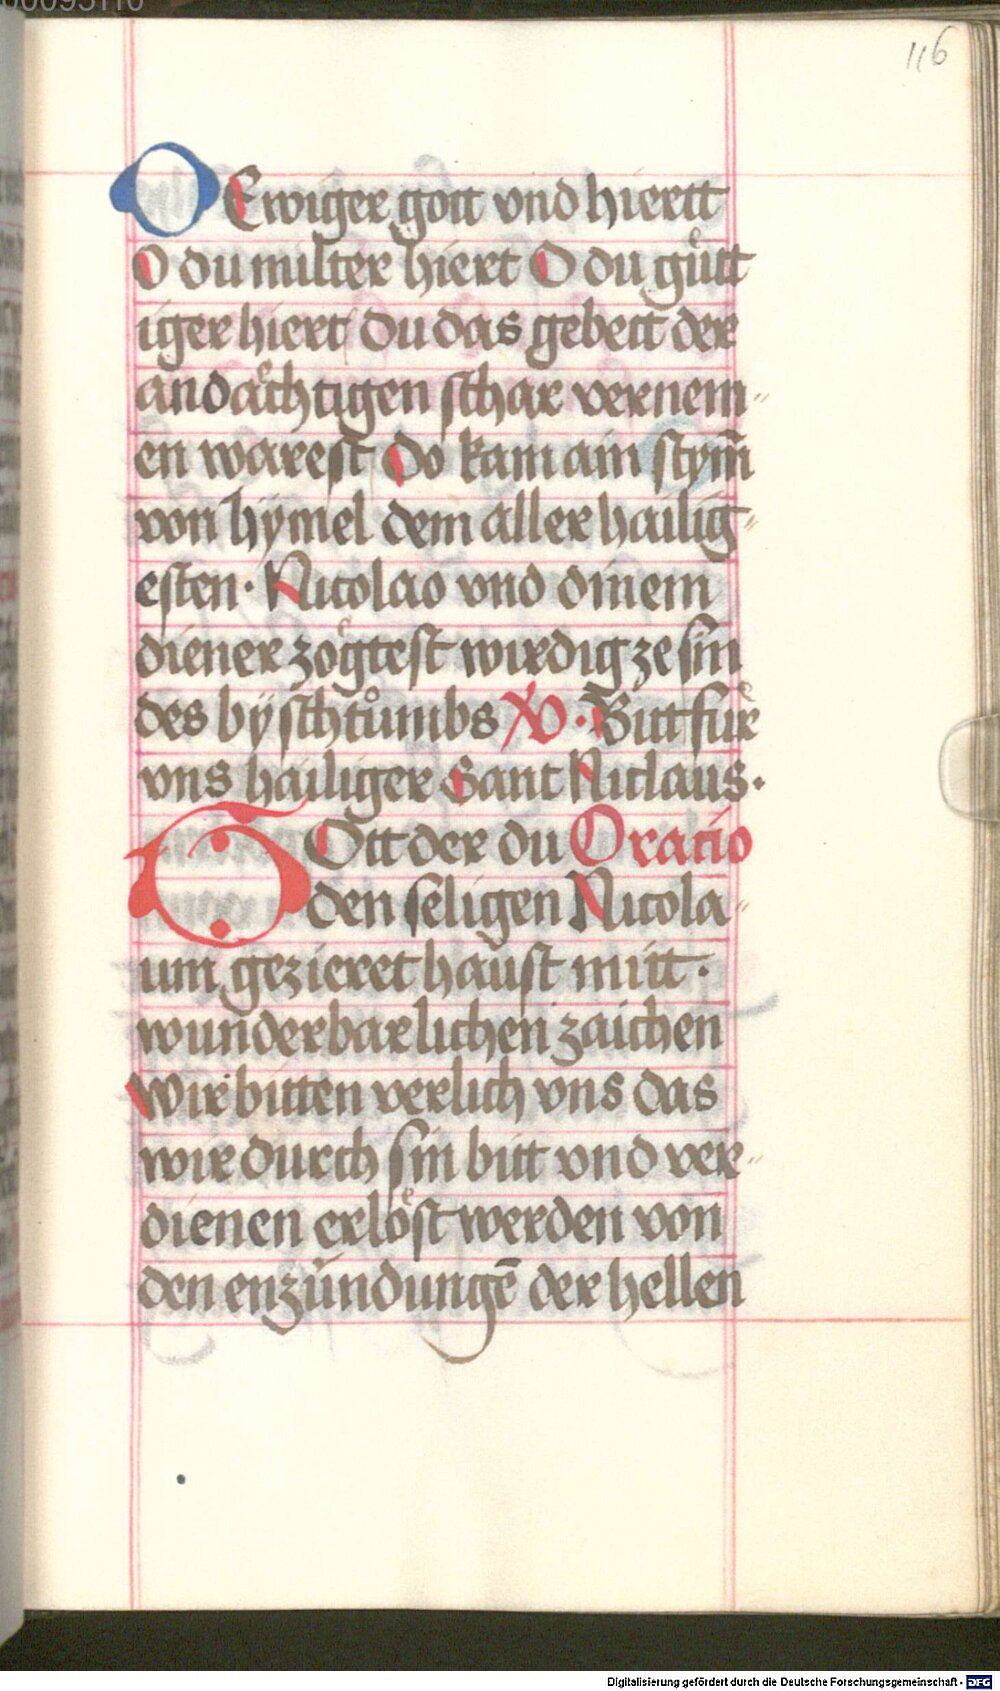 116
O Ewiger gott vnd hiertt
O du milter hiert O du gůtt
iger hiert Du das gebett der
andaͤchtigen schar vernem-
en warest Do kam ain stym̄
von hymel dem aller hailig-
esten· Nicolao vnd dinem
diener zoͤgtest wirdig ze sin
des byschtůmbs V· Bitt fuͤr
vns hailiger Sant Niclaus·
GOtt der du Oratio
den seligen Nicola-
um gezieret haust mitt·
wunderbarlichen zaichen
Wir bitten verlich vns das
wir durch sin bitt vnd ver-
dienen erloͤst werden von
den enzündungē der hellen
Digitalisierung gefördert durch die Deutsche Forschungsgemeinschaft - DFG